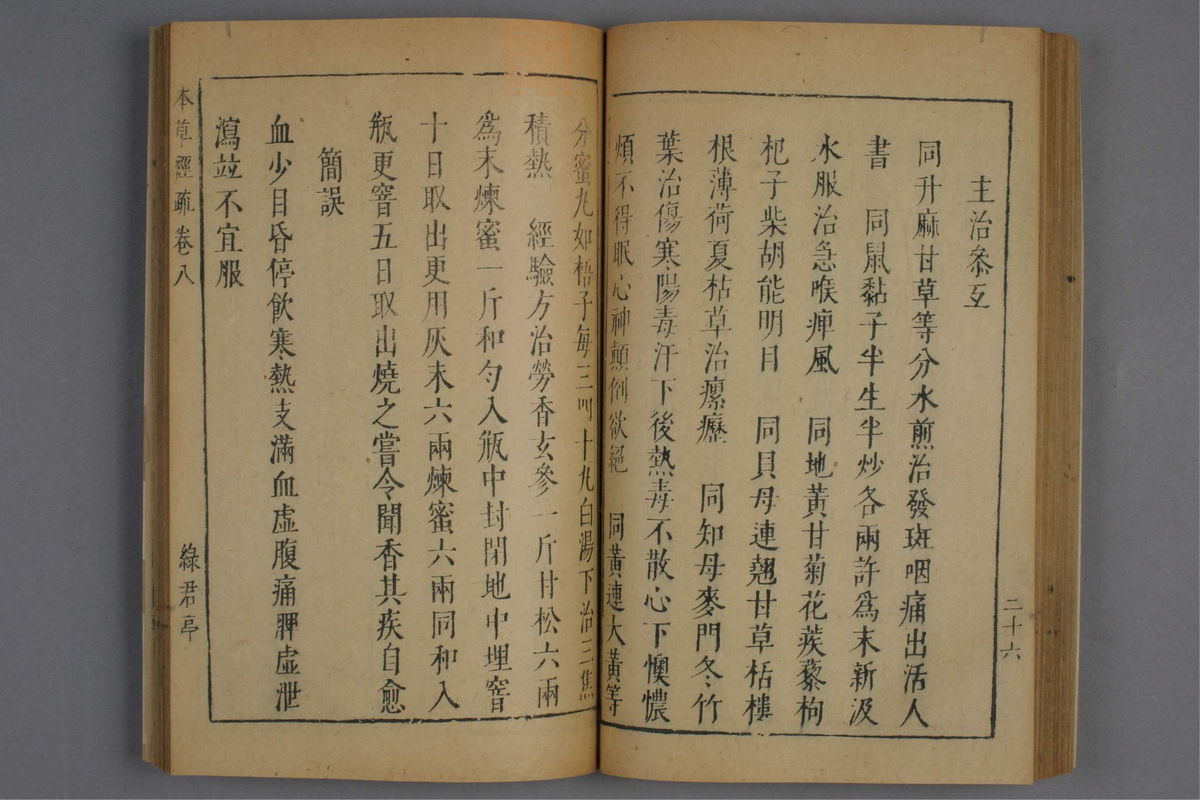 二十六
主治叅互
同升麻甘草等分水煎治發斑咽痛出活人
書　同鼠黏子半生半炒各兩許爲末新汲
水服治急喉痺風　同地黃甘菊花蒺藜枸
杞子柴胡能明目　同貝母連翹甘草栝樓
根薄荷夏枯草治瘰癧　同知母麥門冬竹
葉治傷寒陽毒汗下後熱毒不散心下懊憹
煩不得眠心神顛倒欲絕　同黃連大黃等
分蜜丸如梧子每三四十丸白湯下治三焦
積熱　經驗方治勞香玄參一斤甘松六兩
爲末煉蜜一斤和勻入瓶中封閉地中埋窨
十日取出更用灰末六兩煉蜜六兩同和入
瓶更窨五日取出燒之嘗令聞香其疾自愈
簡誤
血少目昏停飲寒熱支滿血虛腹痛脾虛泄
瀉竝不宜服
本草經疏卷八
綠君亭